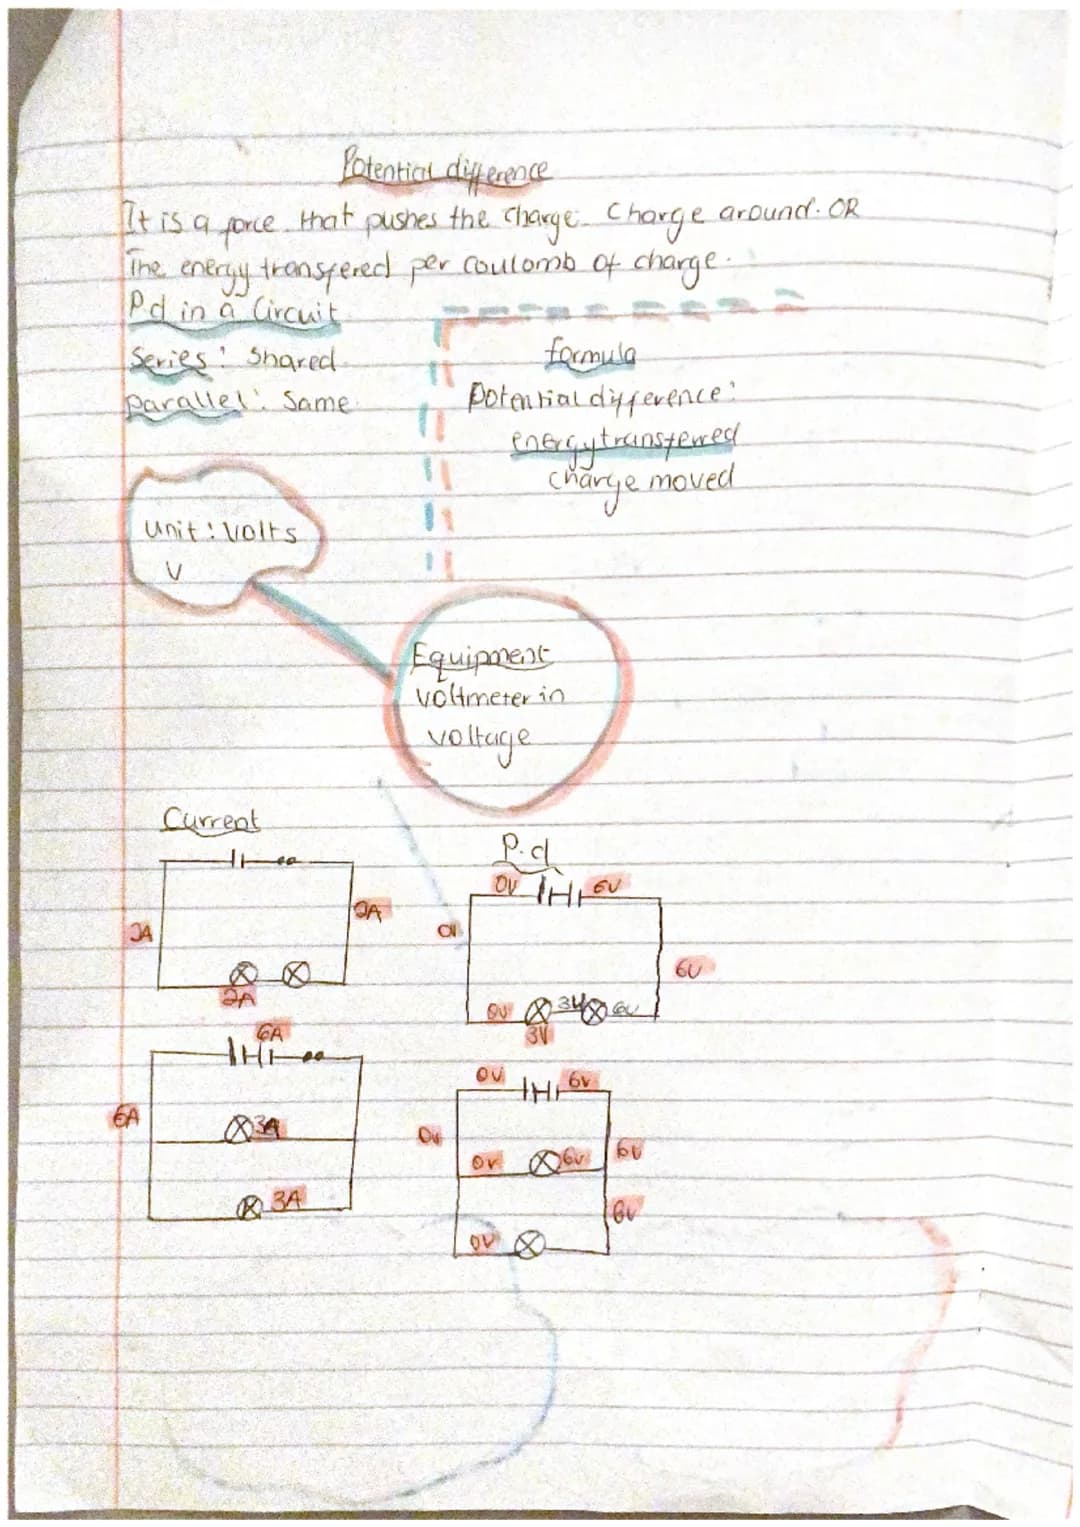 Potential difference
It is a force that pushes the charge. Charge around. OR
The energy transfered per coulomb of charge.
Pd in a Circuit
Series: Shared
parallel: Same
formula
Potential difference:
energy transferred
charge moved
Unit: Volts
V
Equipment
voltmeter in
voltage
Current
2A
2A
2A
6A
6A
3A
3A
P.d
0V 6V
0V
6V
0V 3V 6V
3V
0V 6V
0V
0V 6V 6V
6V
0V